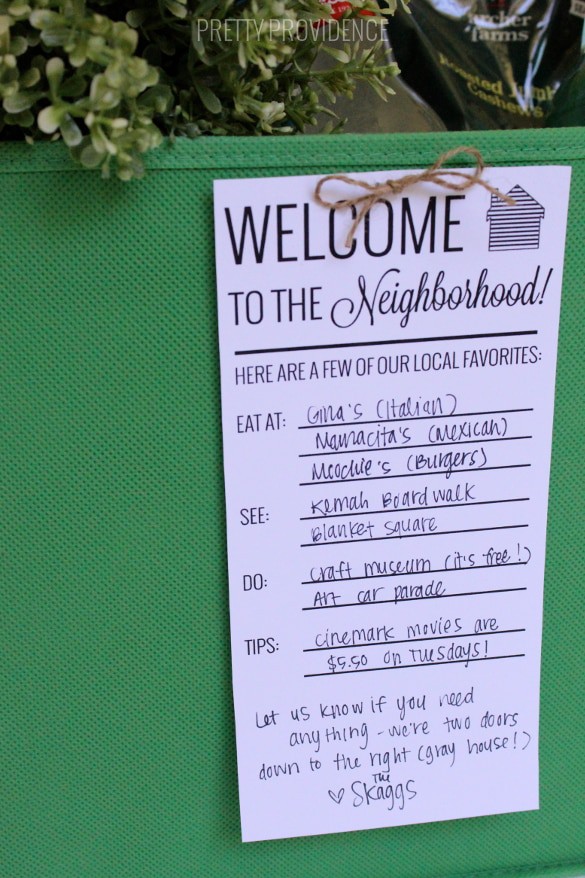 PRETTY PROVIDENCE
archer
farms
Roasted Jumbo
Cashews
WELCOME
TO THE Neighborhood!
HERE ARE A FEW OF OUR LOCAL FAVORITES:
EAT AT: Gina's (Italian)
Mamacita's (Mexican)
Moochie's (Burgers)
SEE: Kemah Boardwalk
Blanket square
DO: Craft museum (it's free!)
Art car parade
TIPS: cinemark movies are
$5.50 on Tuesdays!
Let us know if you need
anything - we're two doors
down to the right (gray house!)
♡ The Skaggs